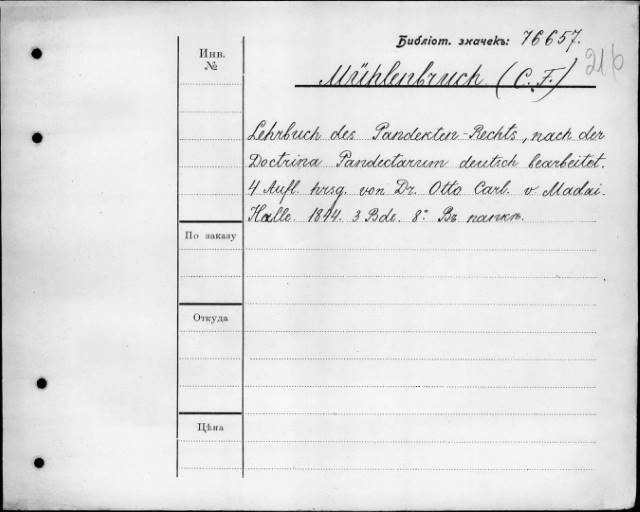 Библіот. значекъ: 76657.
216
Инв.
№
Mühlenbruch (C. F.)
Lehrbuch des Pandekten-Rechts, nach der
Doctrina Pandectarum deutsch bearbeitet.
4 Aufl. hrsg. von Dr. Otto Carl. v. Madai.
Halle. 1844. 3 Bde. 8° Въ папкѣ.
По заказу
Откуда
Цѣна